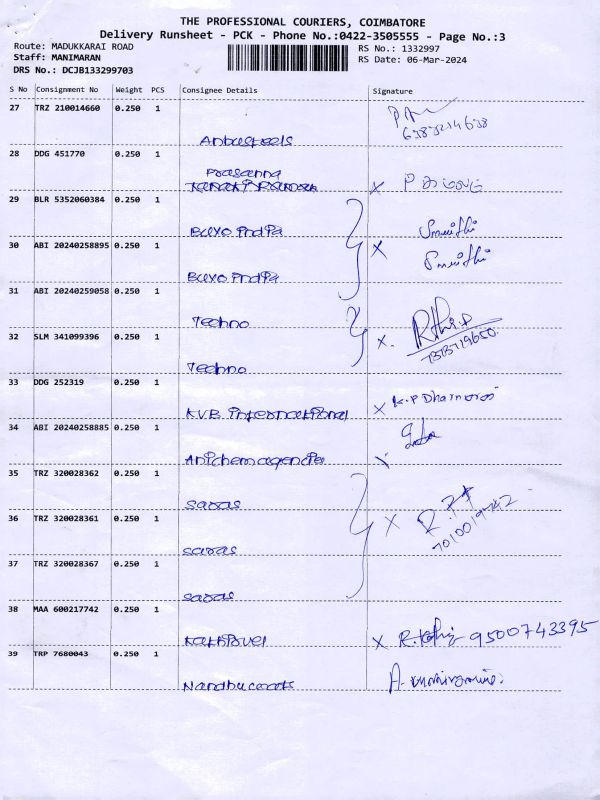 THE PROFESSIONAL COURIERS, COIMBATORE
Delivery Runsheet - PCK - Phone No.:0422-3505555 - Page No.:3
Route: MADUKKARAI ROAD
Staff: MANIMARAN
DRS No.: DCJB133299703
RS No.: 1332997
RS Date: 06-Mar-2024
S No Consignment No Weight PCS Consignee Details Signature
27 TRZ 210014660 0.250 1
Anbusteels
28 DDG 451770 0.250 1
Prasanna
x
29 BLR 5352060384 0.250 1
India
30 ABI 20240258895 0.250 1
x
India
31 ABI 20240259058 0.250 1
Techno
32 SLM 341099396 0.250 1
x
Techno
33 DDG 252319 0.250 1
K.V.B. International x K.P
34 ABI 20240258885 0.250 1
35 TRZ 320028362 0.250 1
saras
36 TRZ 320028361 0.250 1
x
saras
37 TRZ 320028367 0.250 1
saras
38 MAA 600217742 0.250 1
x 9500743395
39 TRP 7680043 0.250 1
Nandhu coats A.